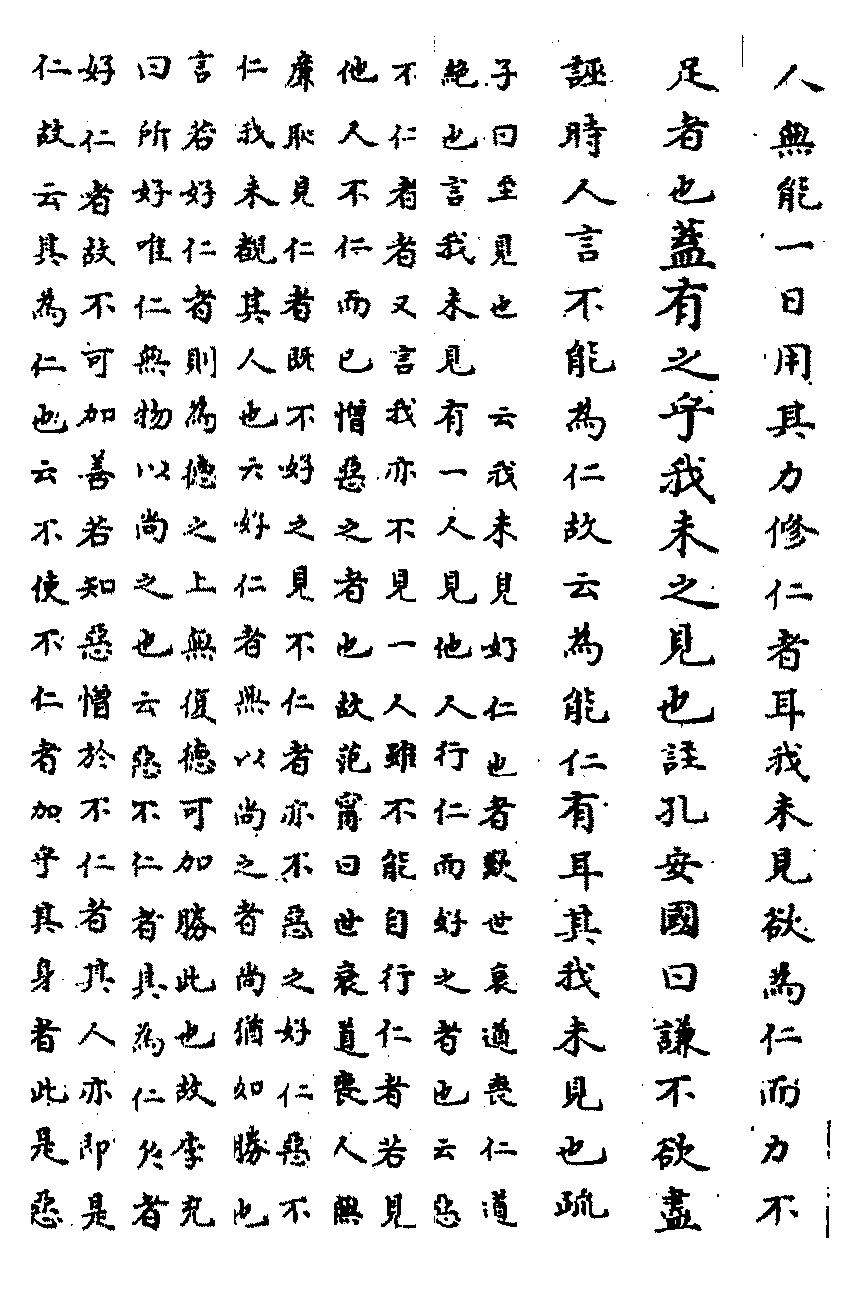 人無能一日用其力修仁者耳我未見欲為仁而力不
足者也蓋有之乎我未之見也註孔安國曰謙不欲盡
誣時人言不能為仁故云為能仁有耳其我未見也疏
子曰至見也　云我未見好仁也者歎世衰道喪仁道
絶也言我未見有一人見他人行仁而好之者也云惡
不仁者者又言我亦不見一人雖不能自行仁者若見
他人不仁而已憎惡之者也故范甯曰世衰道喪人無
廉恥見仁者既不好之見不仁者亦不惡之好仁惡不
仁我未覩其人也云好仁者無以尚之者尚猶如勝也
言若好仁者則為德之上無復德可加勝此也故李充
曰所好唯仁無物以尚之也云惡不仁者其為仁矣者
好仁者故不可加善若知惡憎於不仁者其人亦即是
仁故云其為仁也云不使不仁者加乎其身者此是惡